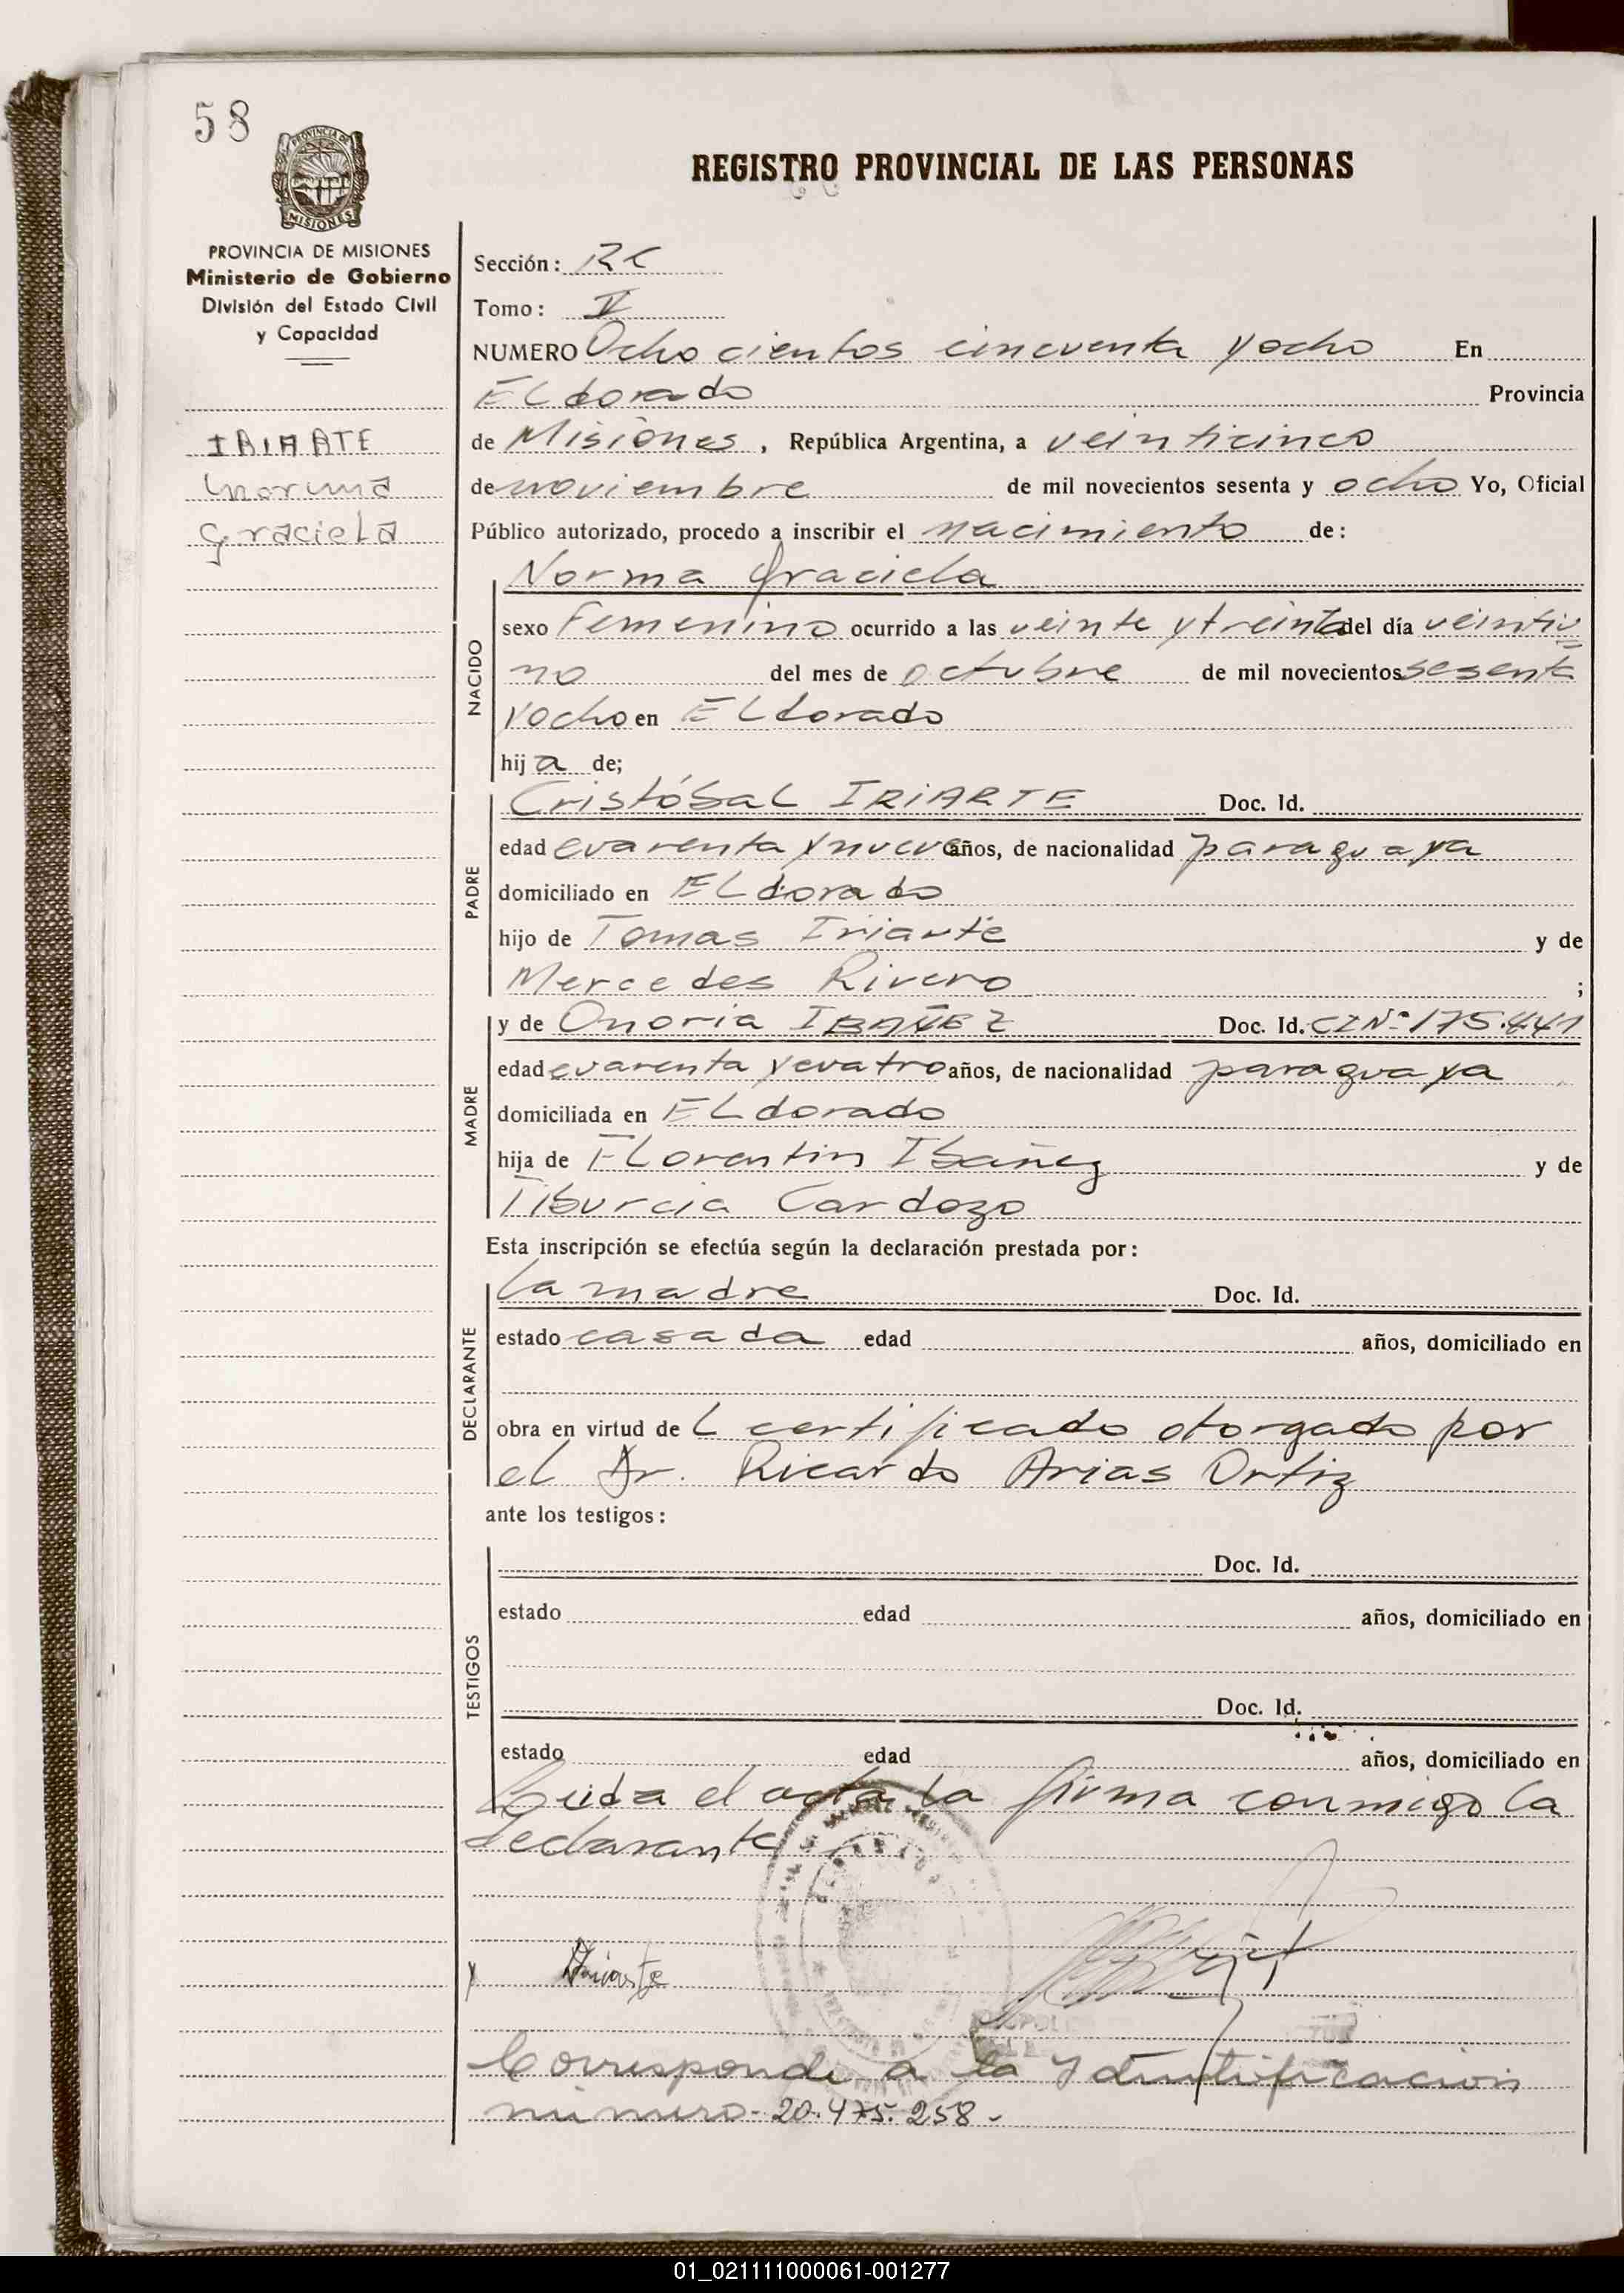 58
PROVINCIA DE
MISIONES
REGISTRO PROVINCIAL DE LAS PERSONAS
PROVINCIA DE MISIONES
Ministerio de Gobierno
División del Estado Civil
y Capacidad
IRIARTE
Norma
Graciela
Sección: RC
Tomo: V
NUMERO Ocho cientos cincuenta y ocho En
ELdorado Provincia
de Misiones, República Argentina, a veinticinco
de noviembre de mil novecientos sesenta y ocho Yo, Oficial
Público autorizado, procedo a inscribir el nacimiento de:
NACIDO
Norma Graciela
sexo Femenino ocurrido a las veinte y treinta del día veintiu=
no del mes de octubre de mil novecientos sesenta
y ocho en ELdorado
hija de;
PADRE
CristóbaL IRIARTE Doc. Id.
edad cuarenta y nueve años, de nacionalidad paraguaya
domiciliado en ELdorado
hijo de Tomas Iriarte y de
Mercedes Rivero ;
MADRE
y de Onoria IBAÑEZ Doc. Id. CI Nº 175.441
edad cuarenta y cuatro años, de nacionalidad paraguaya
domiciliada en ELdorado
hija de FLorentin Ibañez y de
Tiburcia Cardozo
Esta inscripción se efectúa según la declaración prestada por:
DECLARANTE
La madre Doc. Id.
estado casada edad años, domiciliado en
obra en virtud de L certificado otorgado por
el Dr. Ricardo Arias Ortiz
ante los testigos:
TESTIGOS
Doc. Id.
estado edad años, domiciliado en
Doc. Id.
estado edad años, domiciliado en
Leida el acta la firma conmigo la
declarante
Corresponde a la Identificacion
número- 20.475.258-
01_021111000061-001277